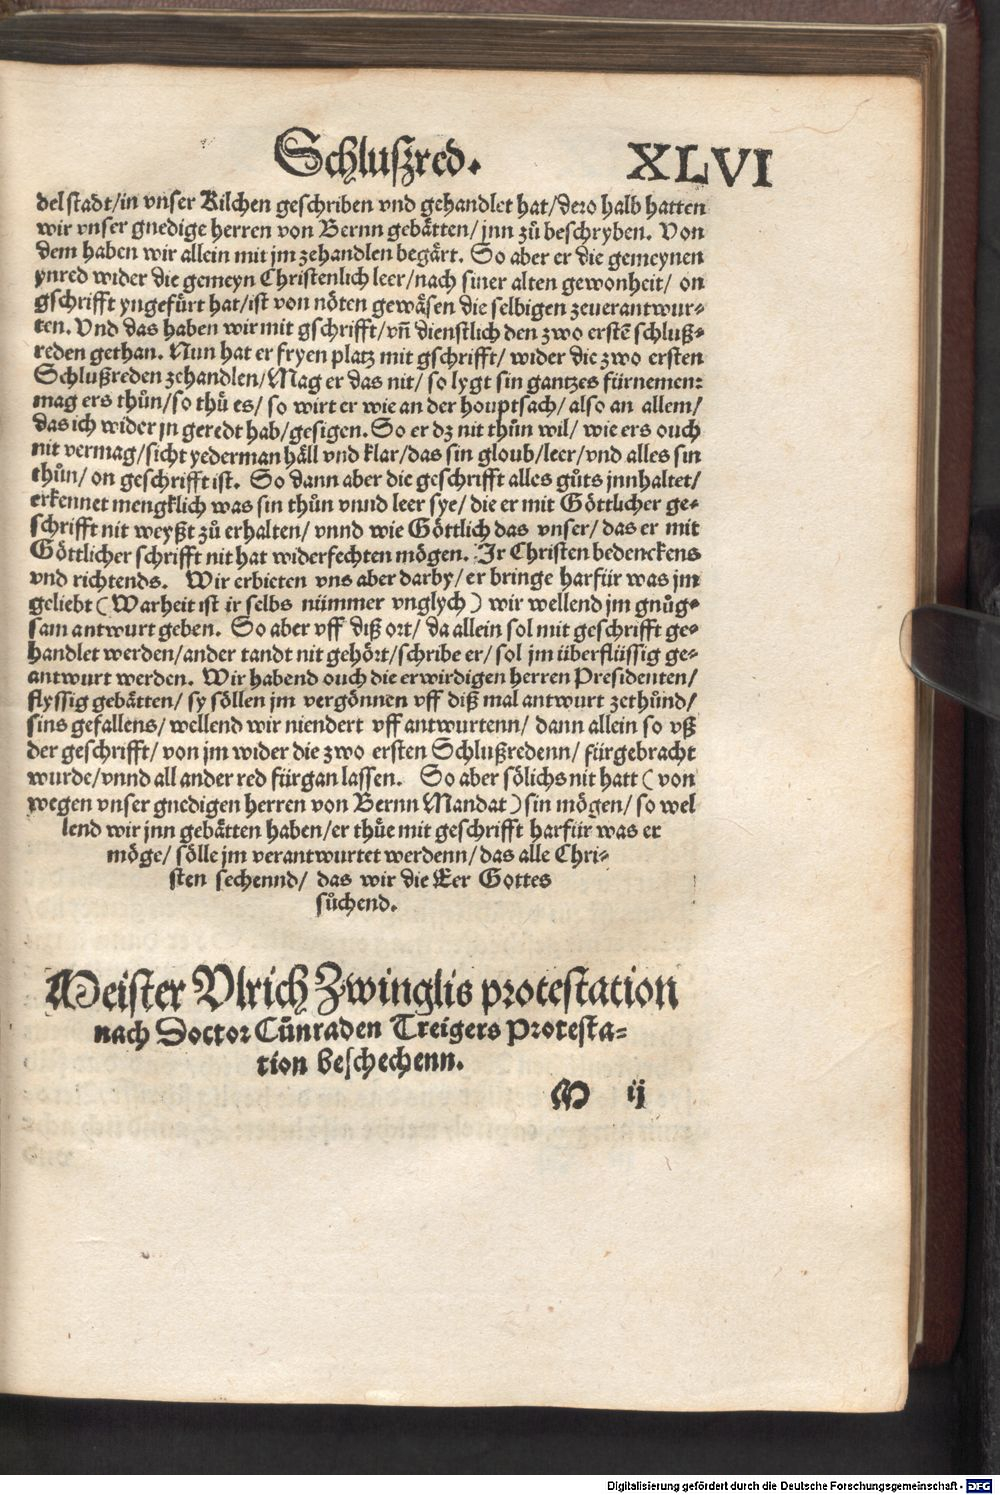 Schluſzred.
XLVI
del stadt/in vnser Kilchen geschriben vnd gehandlet hat/dero halb hatten
wir vnser gnedige herren von Bernn gebätten/jnn zů beschryben. Von
dem haben wir allein mit jm zehandlen begärt. So aber er die gemeynen
ynred wider die gemeyn Christenlich leer/nach siner alten gewonheit/ on
gschrifft yngefürt hat/ist von nöten gewäsen die selbigen zeuerantwur-
ten. Vnd das haben wir mit gschrifft/vñ dienstlich den zwo erstē schluß-
reden gethan. Nun hat er fryen platz mit gschrifft/ wider die zwo ersten
Schlußreden zehandlen/Mag er das nit/ so lygt sin gantzes fürnemen:
mag ers thůn/so thů es/ so wirt er wie an der houptsach/ also an allem/
das ich wider jn geredt hab/gesigen. So er dz nit thůn wil/ wie ers ouch
nit vermag/sicht yederman häll vnd klar/das sin gloub/leer/vnd alles sin
thůn/ on geschrifft ist. So dann aber die geschrifft alles gůts jnnhaltet/
erkennet mengklich was sin thůn vnnd leer sye/ die er mit Göttlicher ge-
schrifft nit weyßt zů erhalten/ vnnd wie Göttlich das vnser/ das er mit
Göttlicher schrifft nit hat widerfechten mögen. Jr Christen bedenckens
vnd richtends. Wir erbieten vns aber darby/ er bringe harfür was jm
geliebt (Warheit ist ir selbs nümmer vnglych) wir wellend jm gnůg-
sam antwurt geben. So aber vff diß ort/ da allein sol mit geschrifft ge-
handlet werden/ander tandt nit gehört/schribe er/ sol jm überflüssig ge-
antwurt werden. Wir habend ouch die erwirdigen herren Presidenten/
flyssig gebätten/ sy söllen jm vergönnen vff diß mal antwurt zethůnd/
sins gefallens/ wellend wir niendert vff antwurtenn/ dann allein so vß
der geschrifft/ von jm wider die zwo ersten Schlußredenn/ fürgebracht
wurde/vnnd all ander red fürgan lassen. So aber sölichs nit hatt (von
wegen vnser gnedigen herren von Bernn Mandat) sin mögen/ so wel
lend wir jnn gebätten haben/er thůe mit geschrifft harfür was er
möge/ sölle jm verantwurtet werdenn/das alle Chri-
sten sechennd/ das wir die Eer Gottes
sůchend.
Meister Vlrich Zwinglis protestation
nach Doctor Cůnraden Treigers Protesta-
tion beschechenn.
M ij
Digitalisierung gefördert durch die Deutsche Forschungsgemeinschaft - DFG